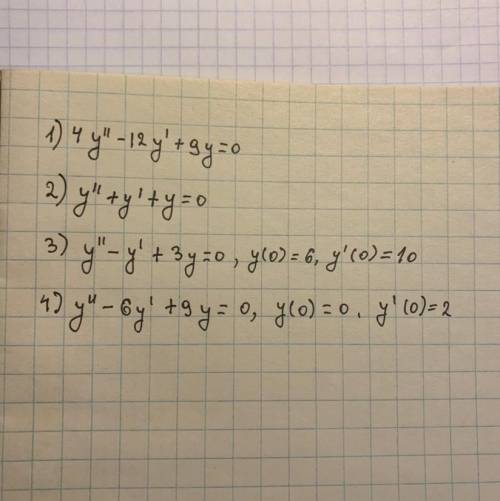 1) 4y'' - 12y' + 9y = 0
2) y'' + y' + y = 0
3) y'' - y' + 3y = 0, y(0) = 6, y'(0) = 10
4) y'' - 6y' + 9y = 0, y(0) = 0. y'(0) = 2